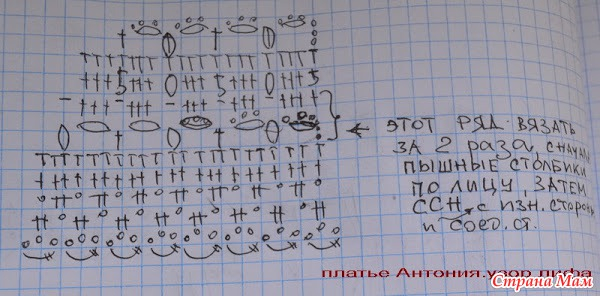 ЭТОТ РЯД ВЯЗАТЬ
ЗА 2 РАЗА, СНАЧАЛА
ПЫШНЫЕ СТОЛБИКИ
ПО ЛИЦУ, ЗАТЕМ
ССН, С ИЗН. СТОРОНЫ
И СОЕД. СТ.
платье Антония.узор лифа
Страна Мам